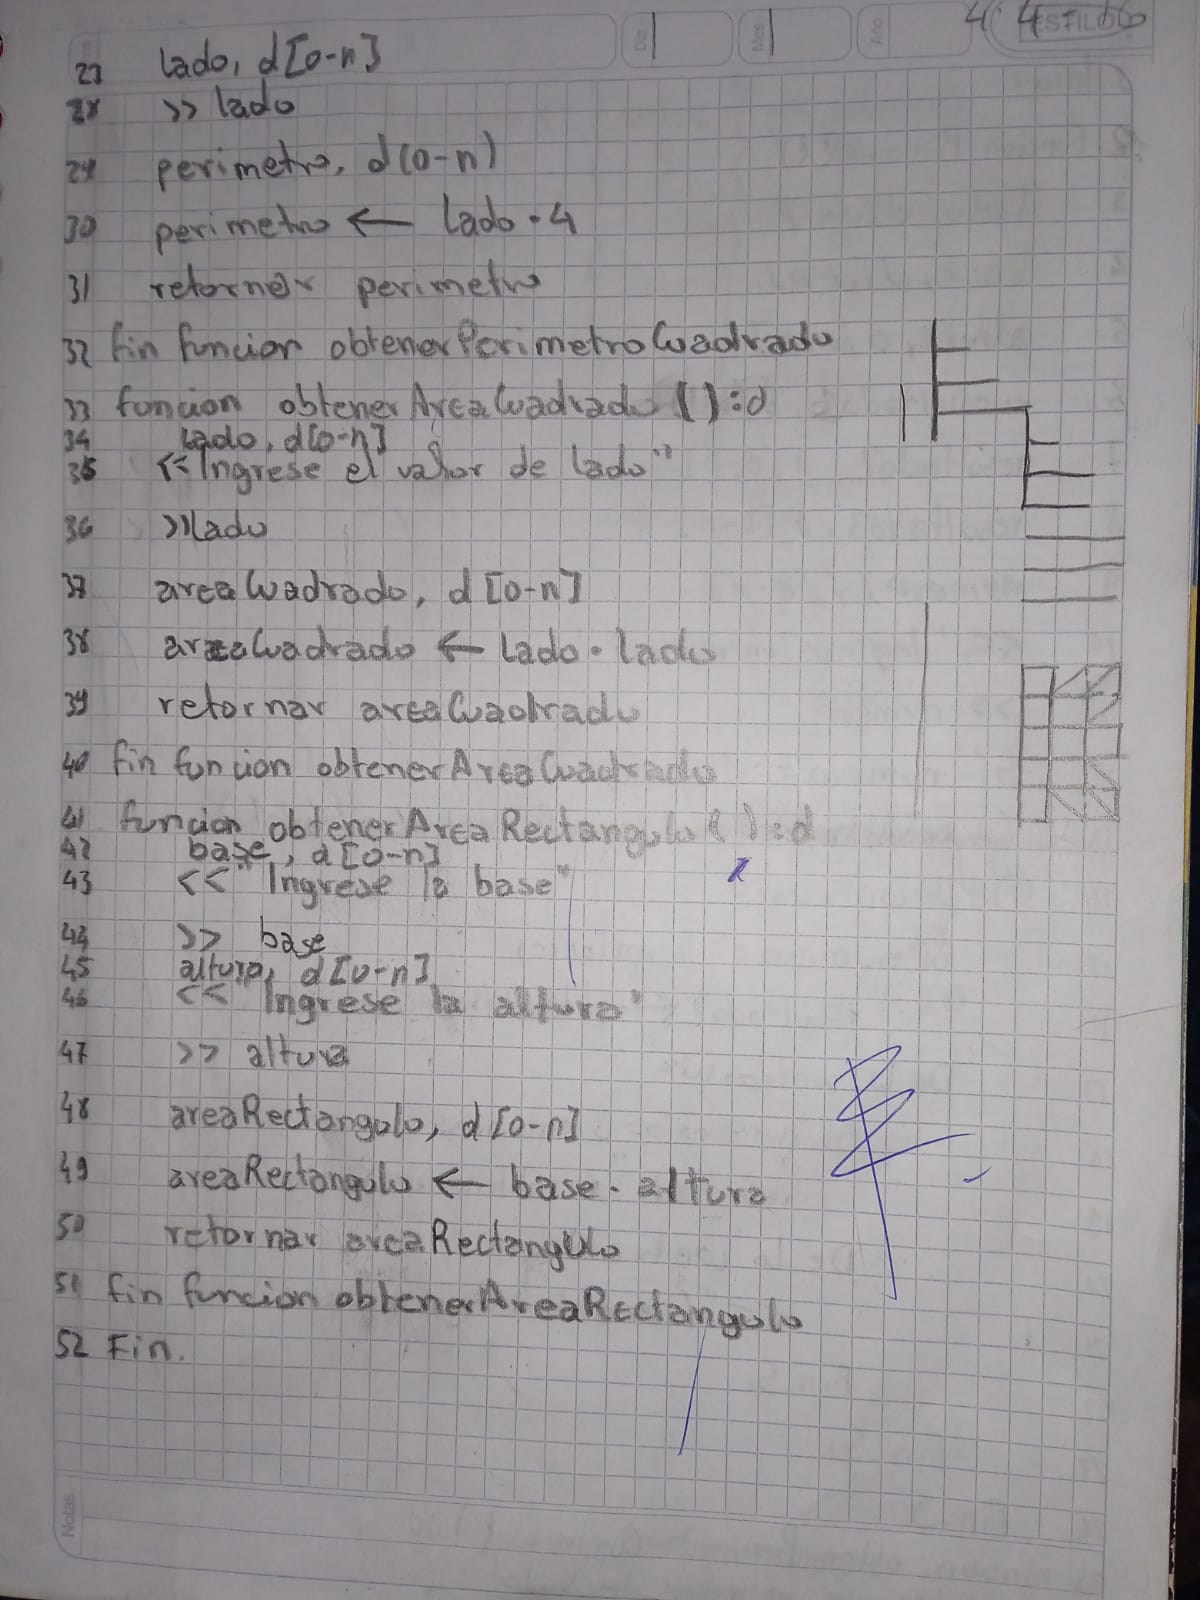 Dia
Mes
Año
4.4 16
ESTILO
27 lado, d[0-n]
28 >> lado
29 perimetro, d(0-n)
30 perimetro ← lado · 4
31 retornar perimetro
32 fin funcion obtenerPerimetroCuadrado
33 funcion obtenerAreaCuadrado ( ):d
34 lado, d[0-n]
35 << "Ingrese el valor de lado"
36 >> lado
37 areaCuadrado, d [0-n]
38 areaCuadrado ← lado · lado
39 retornar areaCuadrado
40 fin funcion obtenerAreaCuadrado
41 funcion obtenerAreaRectangulo ( ):d
42 base, d[0-n]
43 << "Ingrese la base"
44 >> base
45 altura, d[0-n]
46 << "Ingrese la altura"
47 >> altura
48 areaRectangulo, d [0-n]
49 areaRectangulo ← base · altura
50 retornar areaRectangulo
51 fin funcion obtenerAreaRectangulo
52 Fin.
Notas